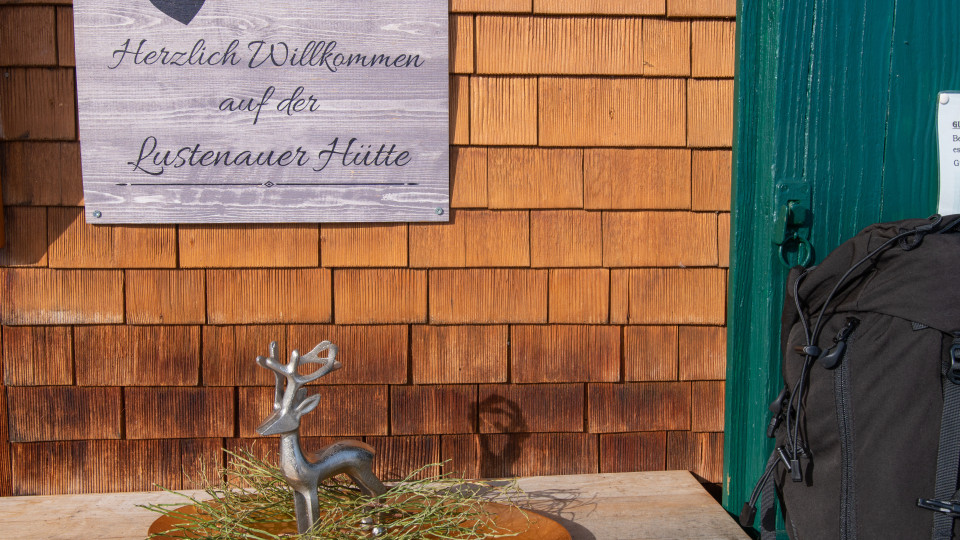 Herzlich Willkommen
auf der
Lustenauer Hütte